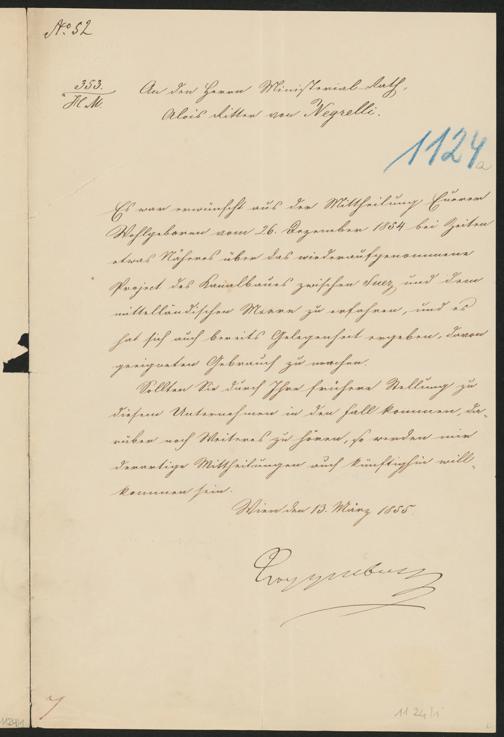 No 52
353.
H.M
An den Herrn Ministerial-Rath,
Alois Ritter von Negrelli.
1124
a
Es war erwünscht aus der Mittheilung Euerer
Wohlgeboren vom 26. Dezember 1854 bei Zeiten
etwas Näheres über das wiederaufgenommene
Project des Kanalbaues zwischen Suez und dem
mittelländischen Meere zu erfahren, und es
hat sich auch bereits Gelegenheit ergeben, davon
geeigneten Gebrauch zu machen.
Sollten Sie durch Ihre frühere Stellung zu
diesem Unternehmen in den Fall kommen, da-
rüber noch Weiteres zu hören, so werden mir
derartige Mittheilungen auch künftighin will-
kommen sein.
Wien den 13. März 1855
7
1124/1